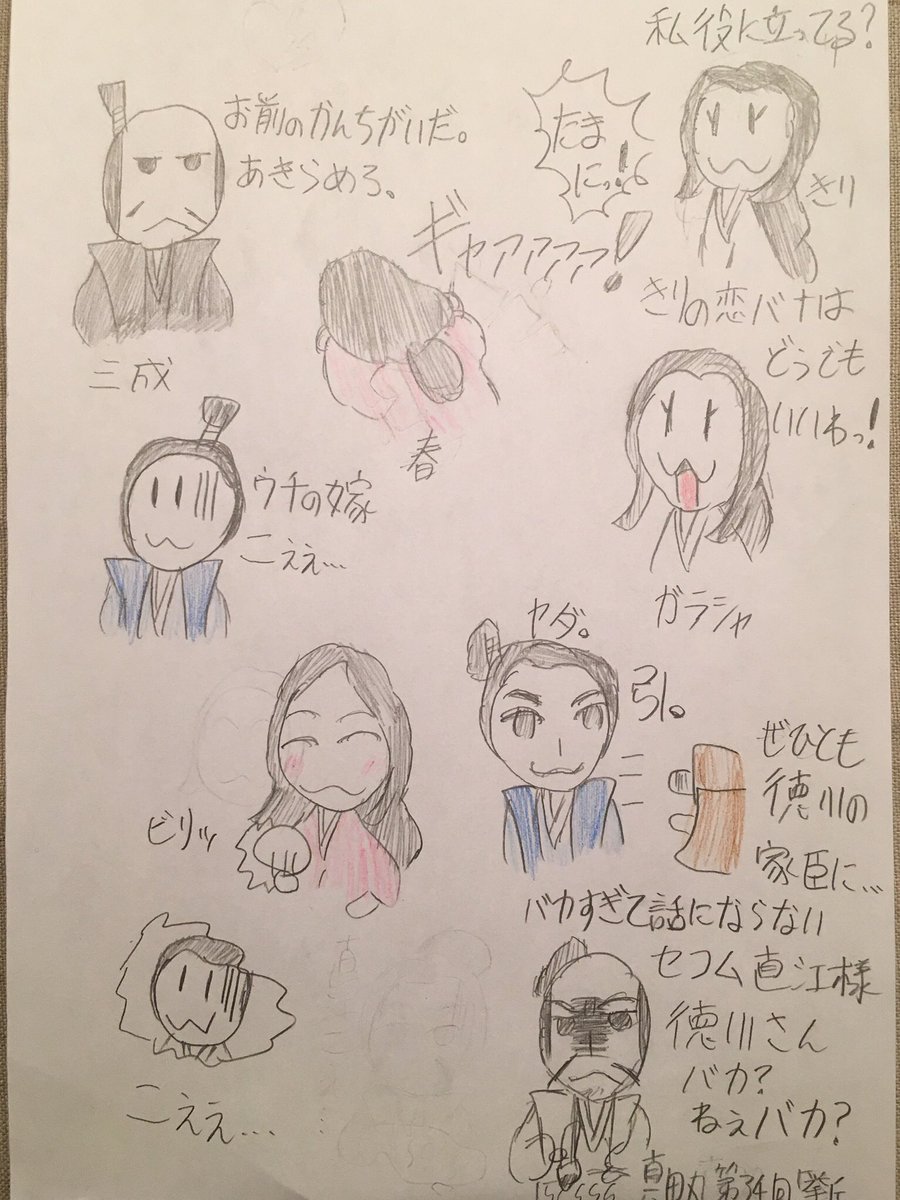 私役に立ってる?
たま
にっ!
きり
お前のかんちがいだ。
あきらめろ。
三成
ギャアアアア!
春
きりの恋バナは
どうでも
いいわっ!
ガラシャ
ウチの嫁
こえぇ…
ヤダ。
引。
ぜひとも
徳川の
家臣に…
ビリッ
こえぇ…
バカすぎて話にならない
セコム直江様
徳川さん
バカ?
ねぇバカ?
真田丸 第34回 挙兵